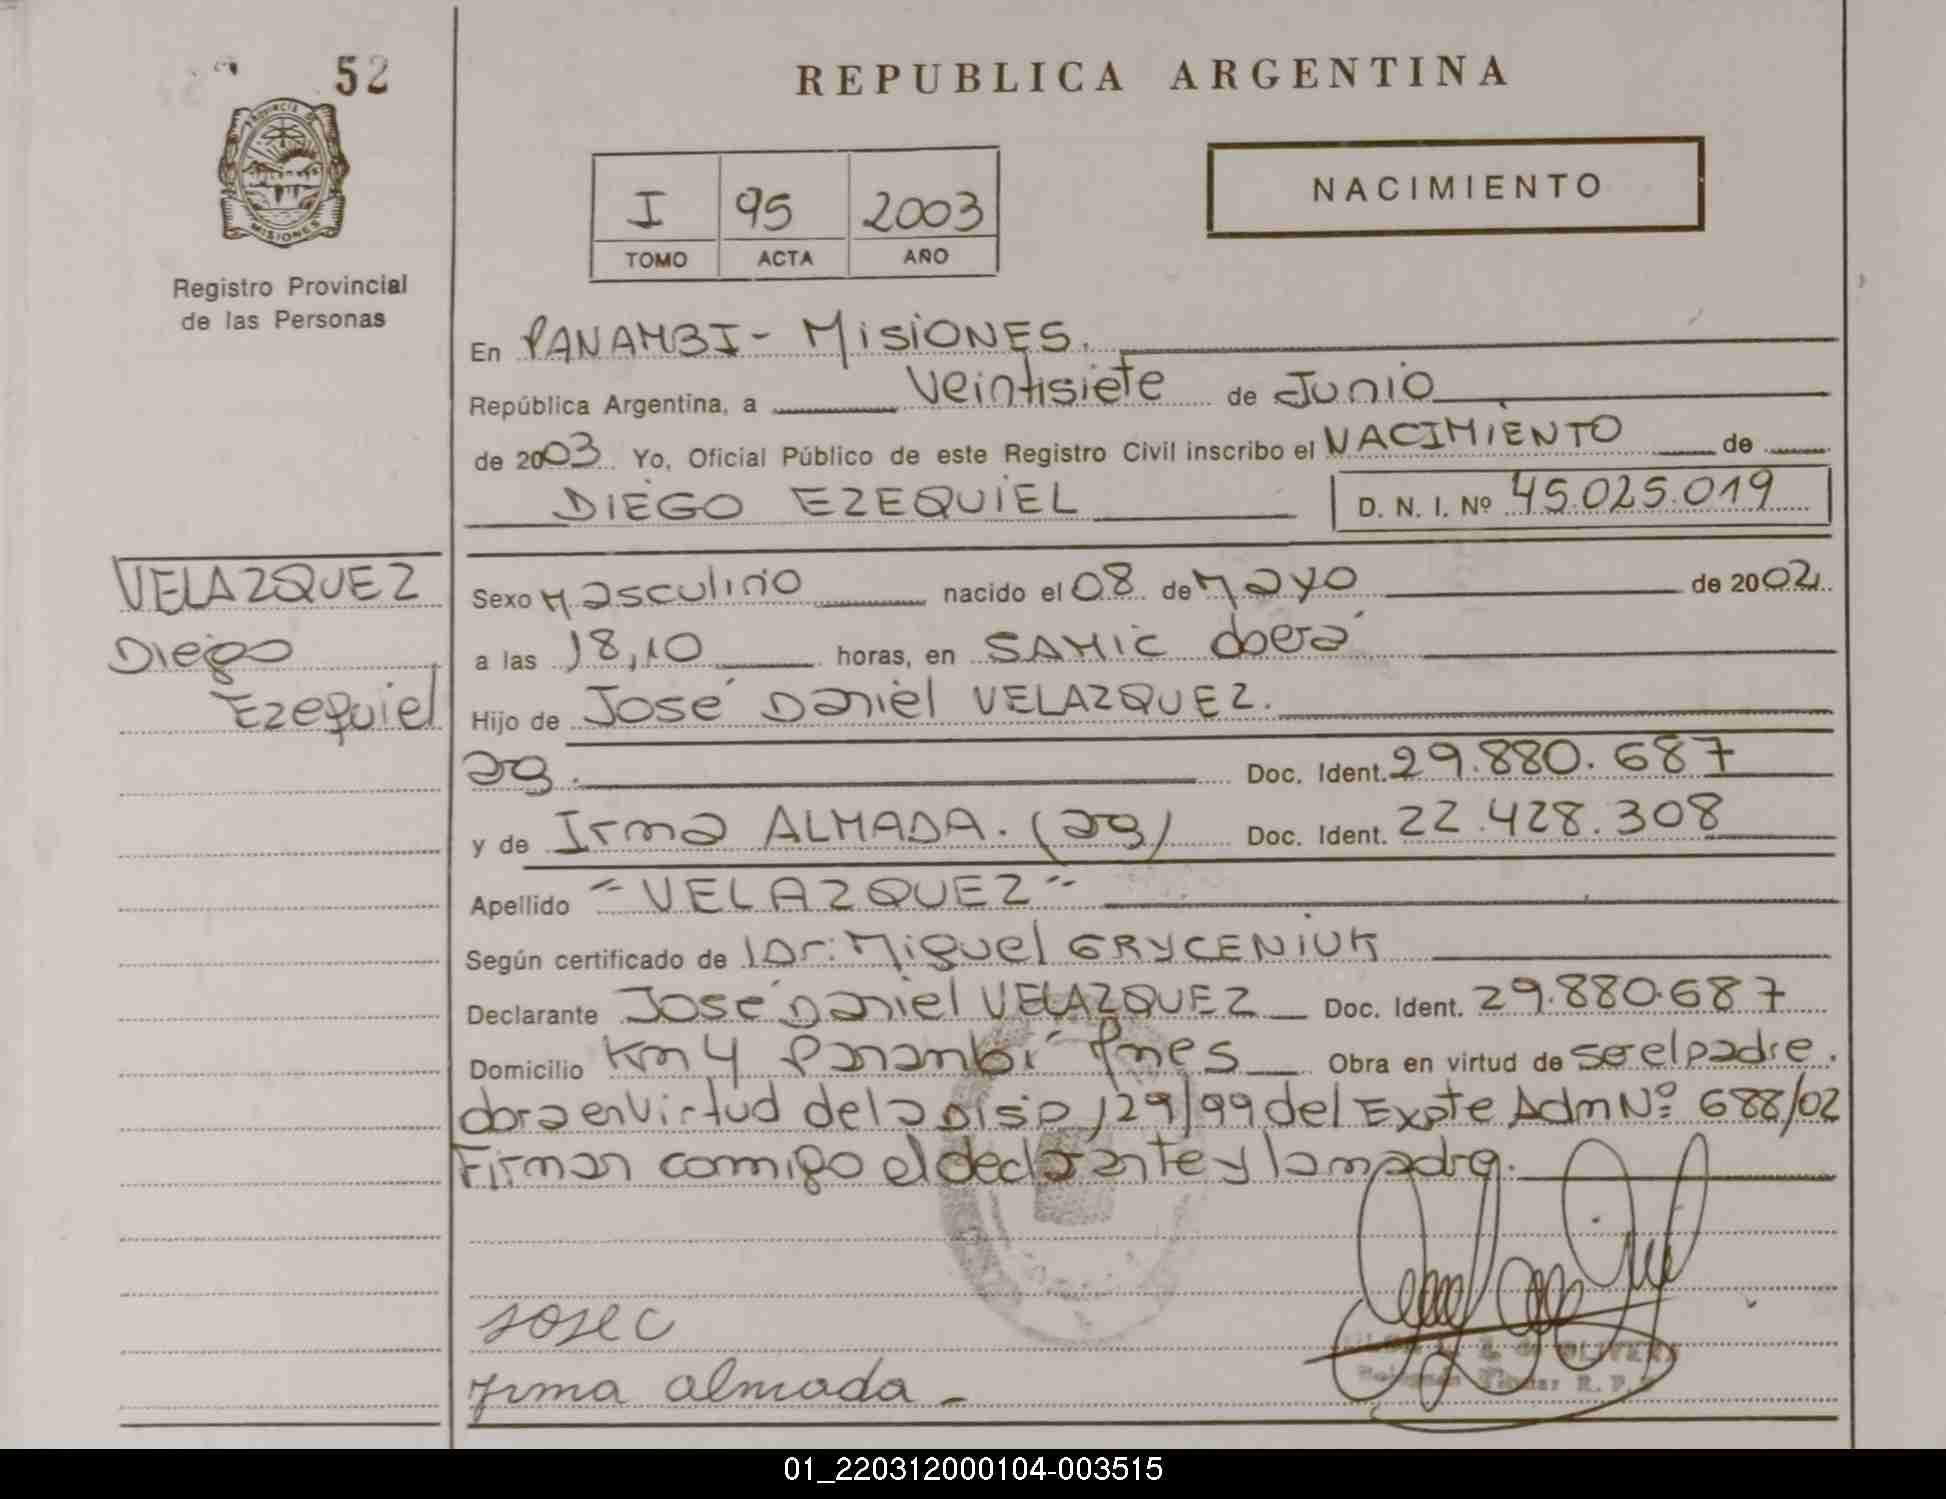 52
PROVINCIA DE
MISIONES
Registro Provincial
de las Personas
REPUBLICA ARGENTINA
I 95 2003
TOMO ACTA AÑO
NACIMIENTO
En PANAMBI - MISIONES.
República Argentina, a veintisiete de Junio
de 2003 Yo, Oficial Público de este Registro Civil inscribo el NACIMIENTO de
DIEGO EZEQUIEL D. N. I. Nº 45.025.019
VELAZQUEZ
Diego
Ezequiel
Sexo Masculino nacido el 08 de Mayo de 2002
a las 18,10 horas, en SAMIC oberá
Hijo de José Daniel VELAZQUEZ.
ag. Doc. Ident. 29.880.687
y de Irma ALMADA. (ag) Doc. Ident. 22.428.308
Apellido "VELAZQUEZ"
Según certificado de Dr. Miguel GRYCENIUK
Declarante José Daniel VELAZQUEZ Doc. Ident. 29.880.687
Domicilio Km 4 Panambí Mnes Obra en virtud de ser el padre.
obra en virtud de la Disp. 129/99 del Expte Adm Nº 688/02
Firman conmigo el declarante y la madre.
irma almada -
01_220312000104-003515